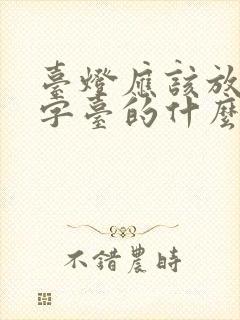 臺燈應該放
字臺的什麼
不錯農時